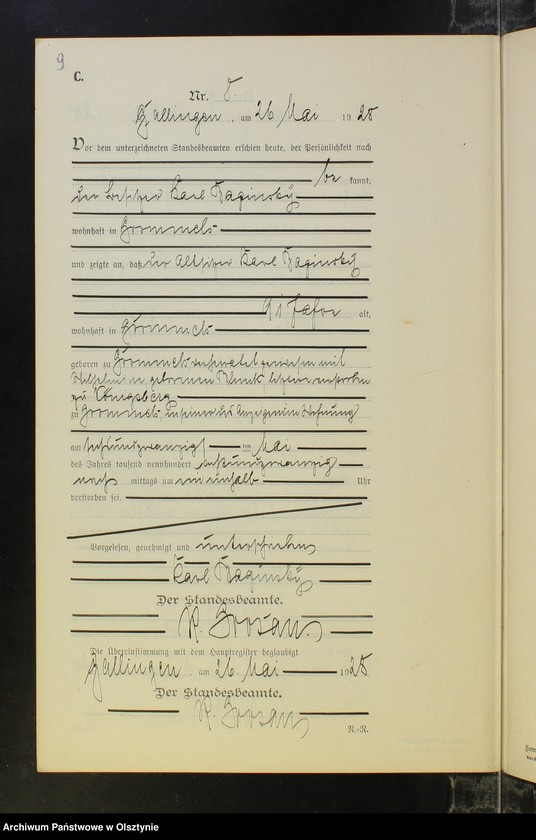 9
C.
Nr. 8
Gallingen, am 26. Mai 1928
Vor dem unterzeichneten Standesbeamten erschien heute, der Persönlichkeit nach
be kannt,
der Besitzer Karl Raginsky
wohnhaft in Grommels
und zeigte an, daß der Altsitzer Karl Raginsky
91 Jahre alt,
wohnhaft in Grommels
geboren zu Grommels, verheiratet gewesen mit
geborenen letztere verstorben
zu Königsberg
zu Grommels, in seiner des Anzeigenden Wohnung
am sechsundzwanzig ten Mai
des Jahres tausend neunhundert achtundzwanzig
nach mittags um ein einhalb Uhr
verstorben sei.
Vorgelesen, genehmigt und unterschrieben
Karl Raginsky
Der Standesbeamte.
R. Grosan
Die Übereinstimmung mit dem Hauptregister beglaubigt
Gallingen, am 26. Mai 1928
Der Standesbeamte.
R. Grosan
R.-R.
Archiwum Państwowe w Olsztynie